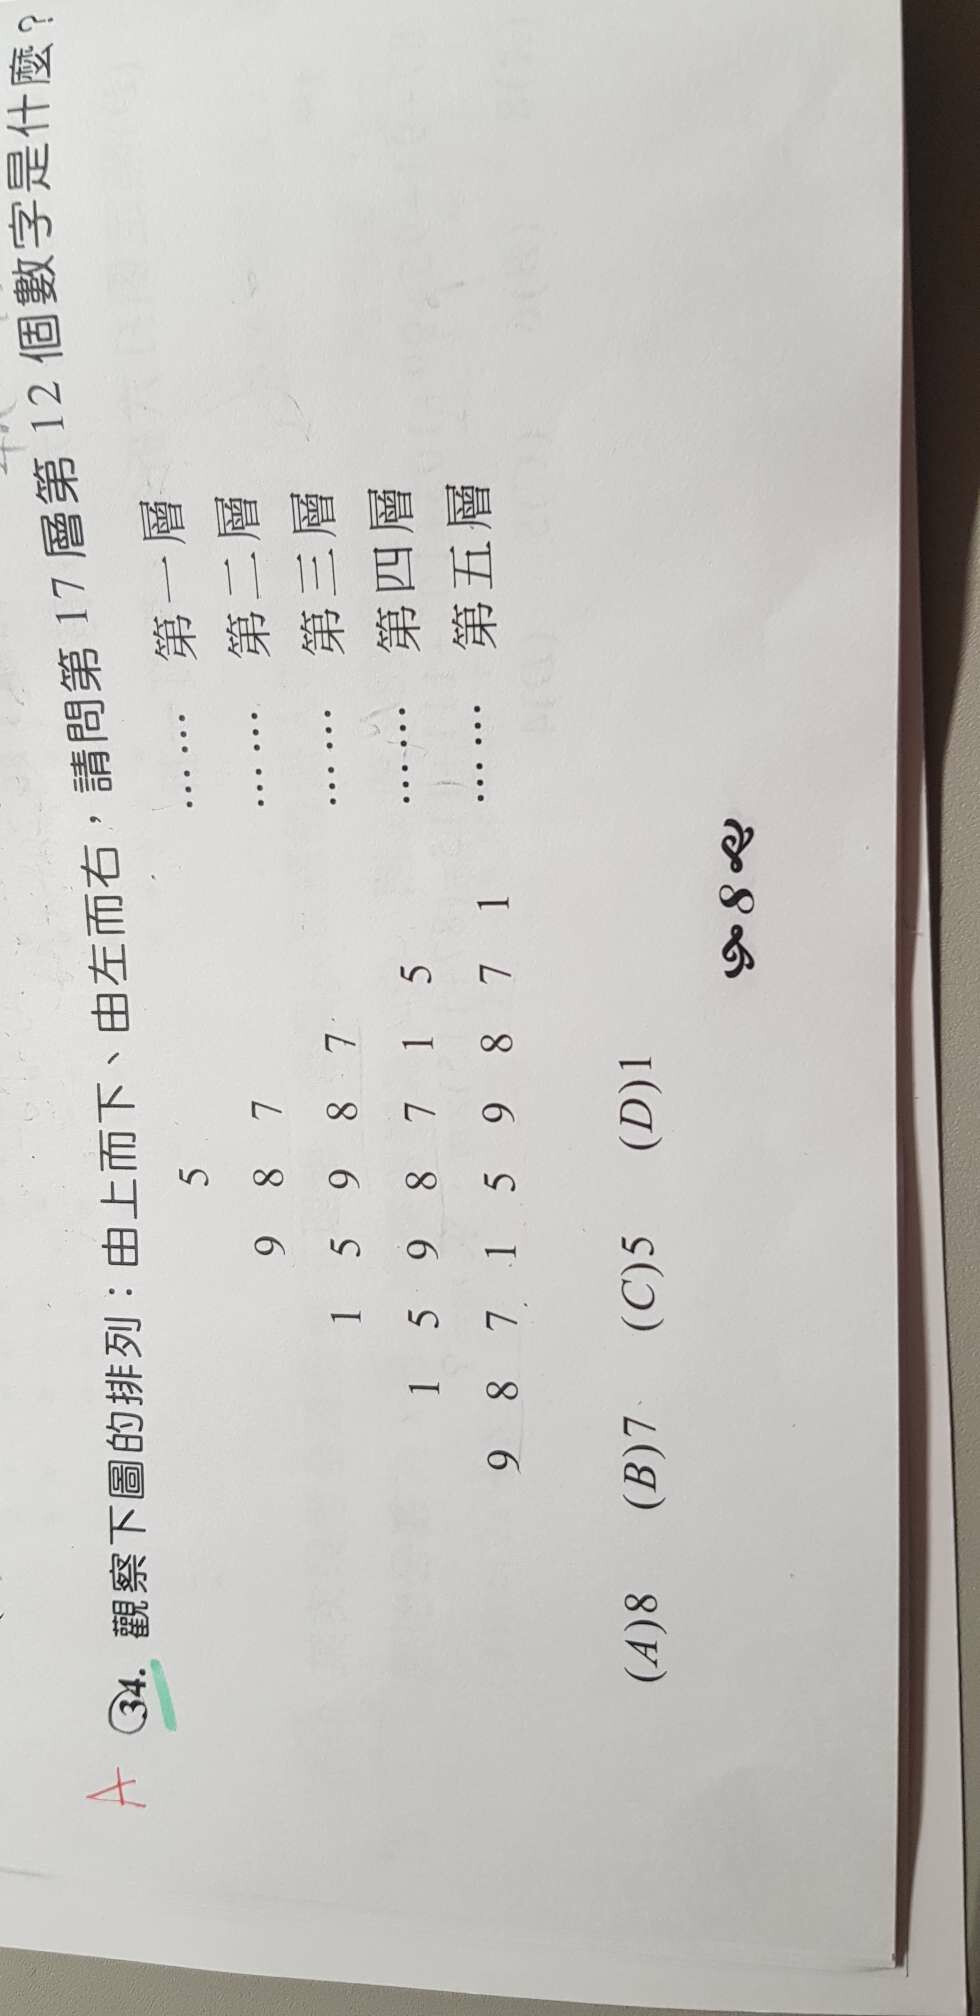 A 34. 觀察下圖的排列：由上而下、由左而右，請問第 17 層第 12 個數字是什麼？
5 …… 第一層
9 8 7 …… 第二層
1 5 9 8 7 …… 第三層
1 5 9 8 7 1 5 …… 第四層
9 8 7 1 5 9 8 7 1 …… 第五層
(A)8 (B)7 (C)5 (D)1
8